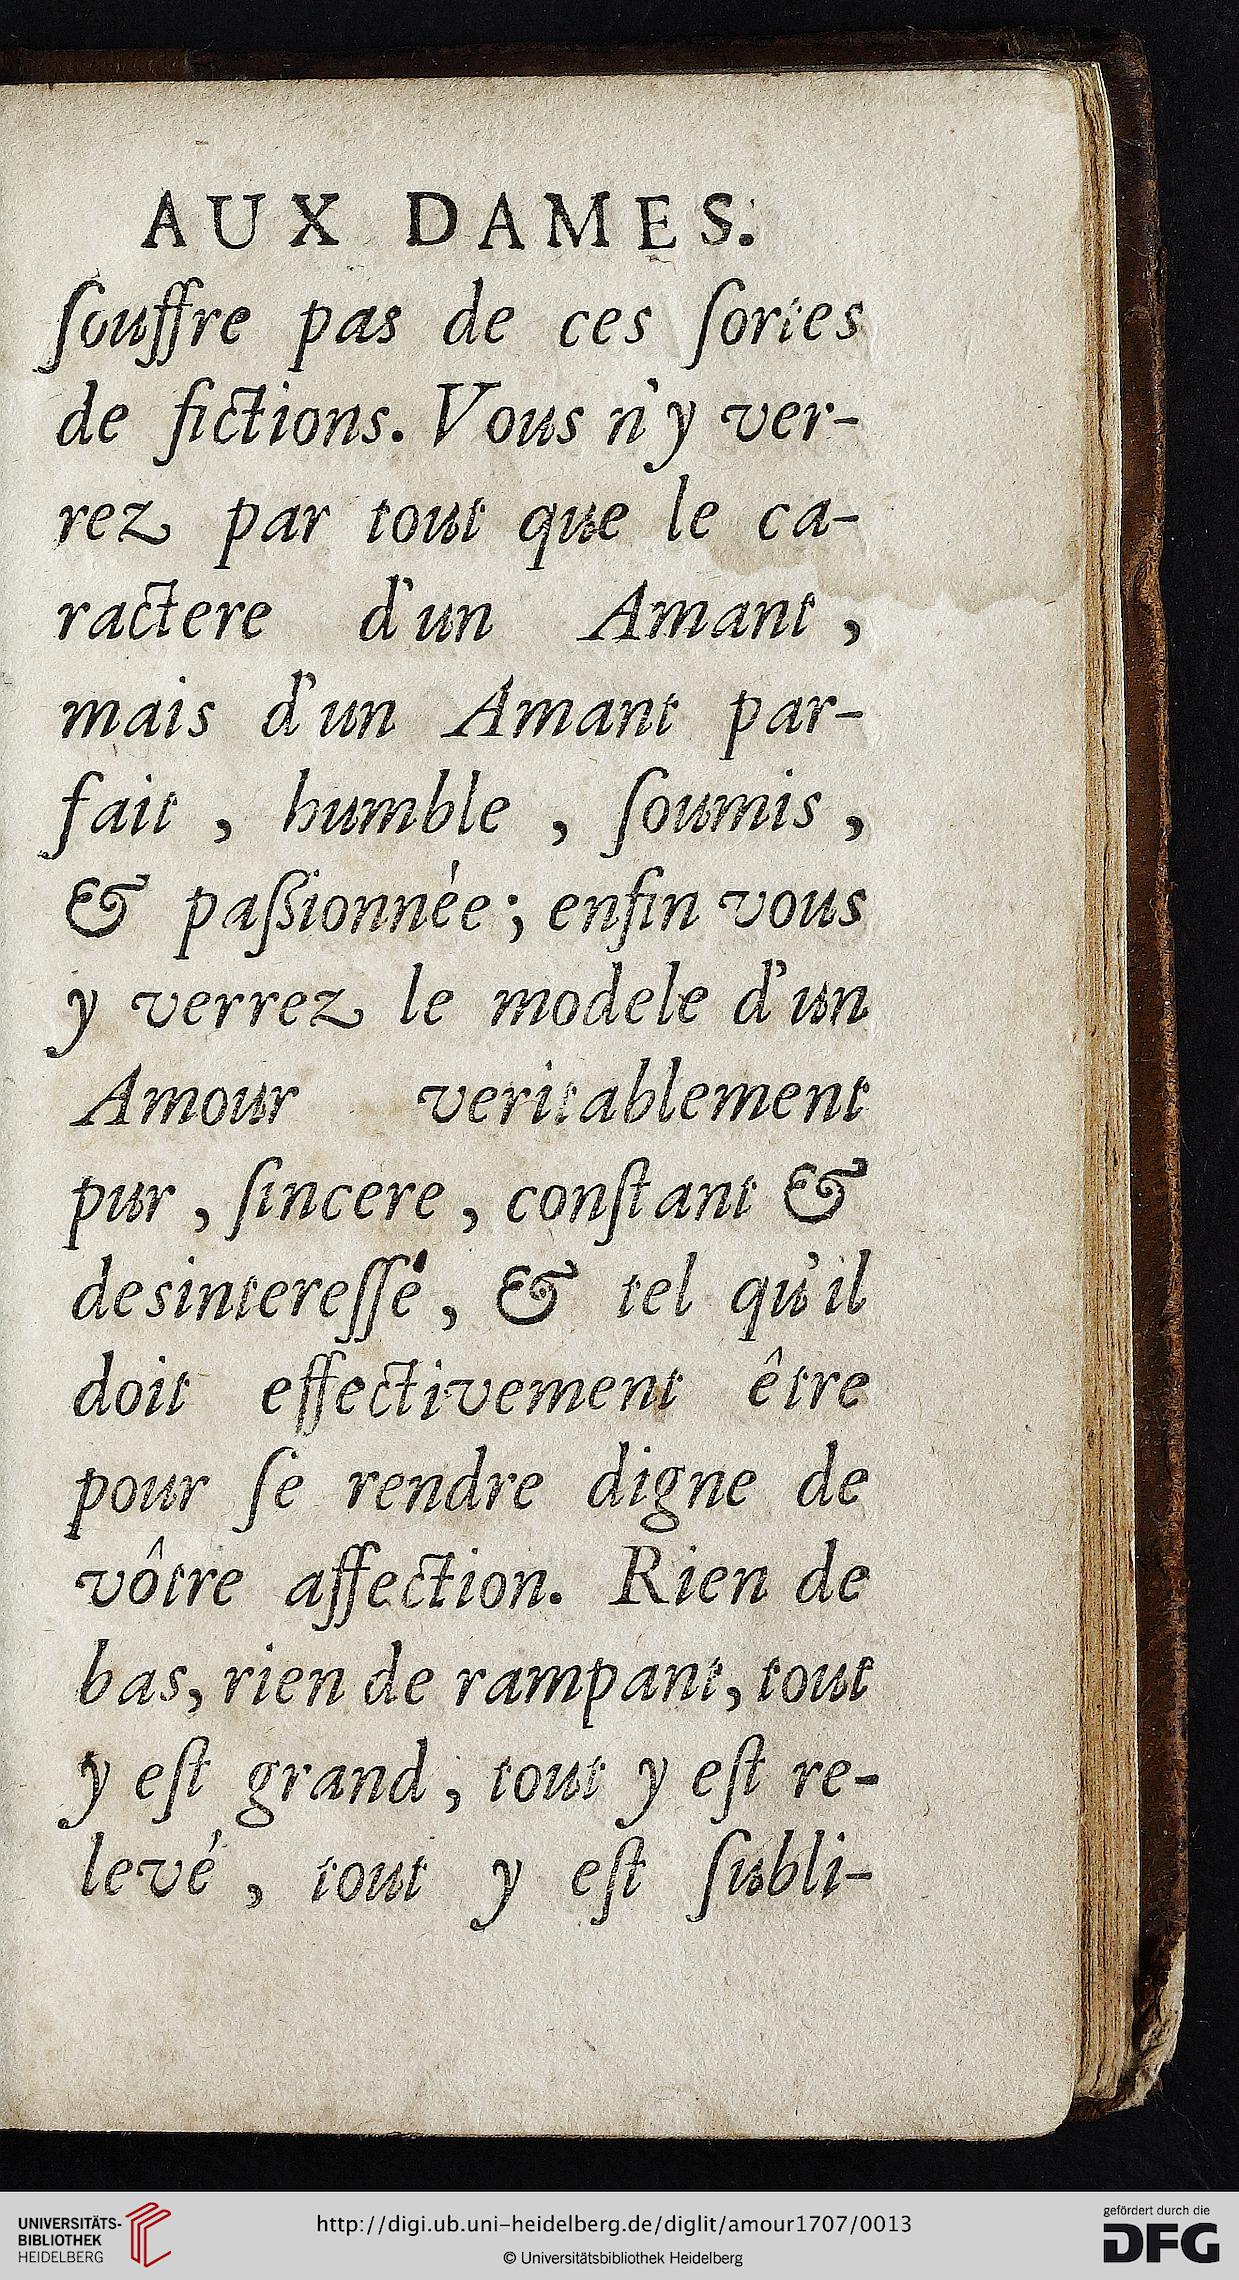 AUX DAMES.
ſouffre pas de ces ſortes
de fictions. Vous n'y ver-
rez par tout que le ca-
ractere d'un Amant,
mais d'un Amant par-
fait, humble, ſoumis,
& paſsionnée; enfin vous
y verrez le modele d'un
Amour veritablement
pur, ſincere, conſtant &
desintereſſé, & tel qu'il
doit effectivement être
pour ſe rendre digne de
vôtre affection. Rien de
bas, rien de rampant, tout
y eſt grand, tout y eſt re-
levé, tout y eſt ſubli-
UNIVERSITÄTS-
BIBLIOTHEK
HEIDELBERG
http://digi.ub.uni-heidelberg.de/diglit/amour1707/0013
© Universitätsbibliothek Heidelberg
gefördert durch die
DFG